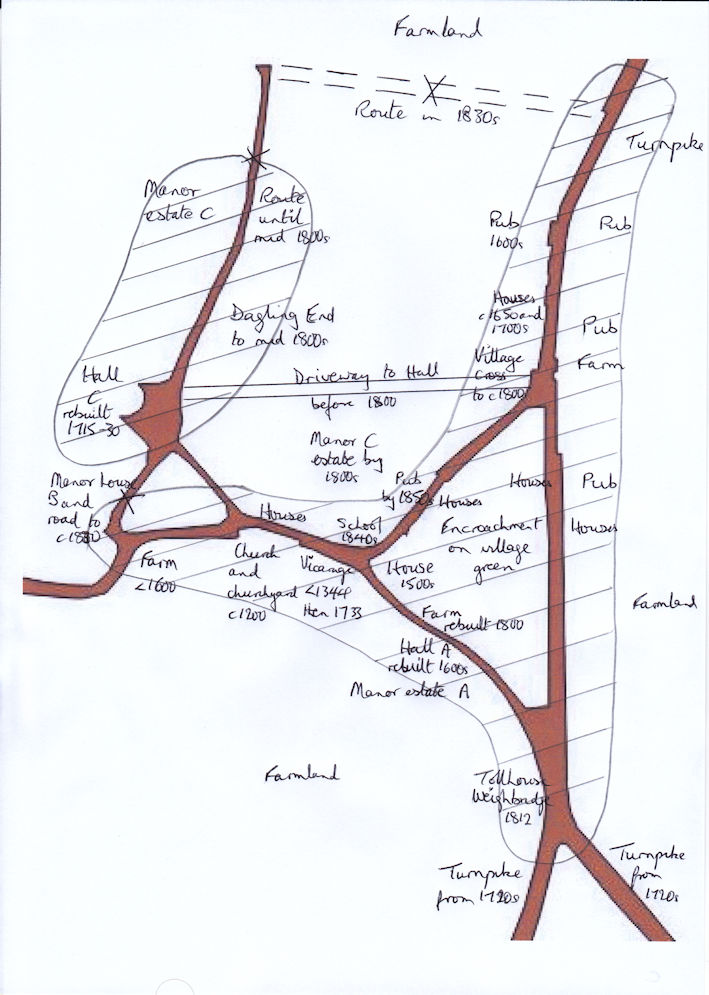 Farmland
Route in 1830s
Turnpike
Manor
estate C
Route
until
mid 1800s
Pub
1600s
Pub
Dagling End
to mid 1800s
Houses
c1650 and
1700s
Pub
Village
Cross
to c1800
Farm
Hall
C
rebuilt
1715-30
Driveway to Hall
before 1800
Manor C
estate by
1800s
Manor House
B and
road to
Pub
by 1850
Houses
Houses
Pub
Houses
School
1840s
Encroachment
on village
green
Houses
Farm
<1600
Church
and
churchyard
c1200
Vicarage
<1344
then 1733
House
1500s
Farm
rebuilt 1800
Farmland
Hall A
rebuilt 1600s
Manor estate A
Farmland
Tollhouse
Weighbridge
1812
Turnpike
from 1720s
Turnpike
from
1720s